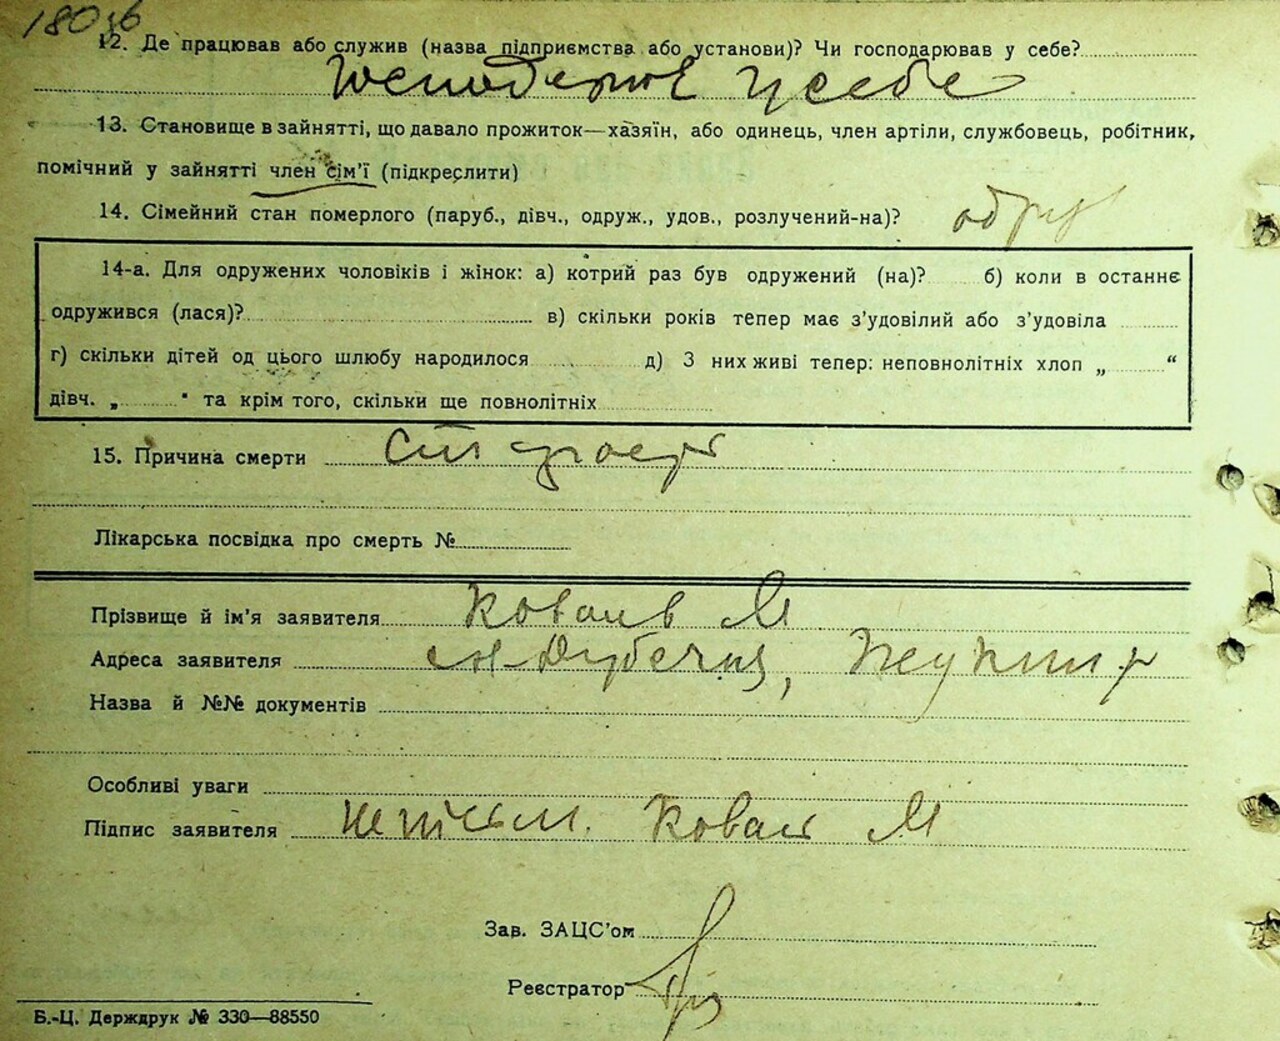 180 зб
12. Де працював або служив (назва підприємства або установи)? Чи господарював у себе?
господарюв у себе
13. Становище в зайнятті, що давало прожиток—хазяїн, або одинець, член артіли, службовець, робітник,
помічний у зайнятті член сім'ї (підкреслити)
14. Сімейний стан померлого (паруб., дівч., одруж., удов., розлучений-на)? одруж
14-а. Для одружених чоловіків і жінок: а) котрий раз був одружений (на)? б) коли в останнє
одружився (лася)? в) скільки років тепер має з'удовілий або з'удовіла
г) скільки дітей од цього шлюбу народилося д) З них живі тепер: неповнолітніх хлоп „ “
дівч. „ " та крім того, скільки ще повнолітніх
15. Причина смерти
Лікарська посвідка про смерть №
Прізвище й ім'я заявителя Ковалів М
Адреса заявителя
Назва й №№ документів
Особливі уваги
Підпис заявителя неписьм. Коваль М
Зав. ЗАЦС'ом
Реєстратор
Б.-Ц. Держдрук № 330—88550